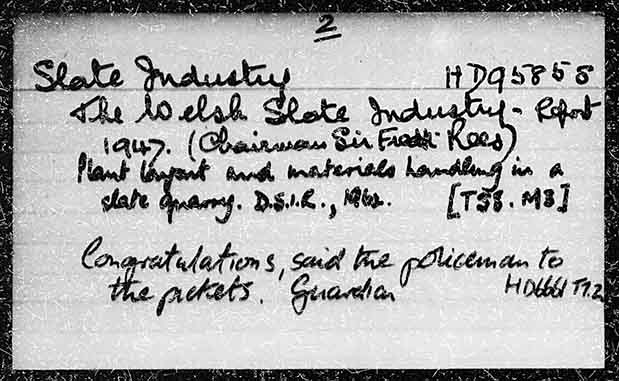 2
Slate Industry HD95858
The Welsh Slate Industry - Report
1947. (Chairman Sir Fredk Rees)
Plant layout and materials handling in a
slate quarry. D.S.I.R., 1962. [T58.M8]
Congratulations, said the policeman to
the pickets. Guardian HD6661 T1.2